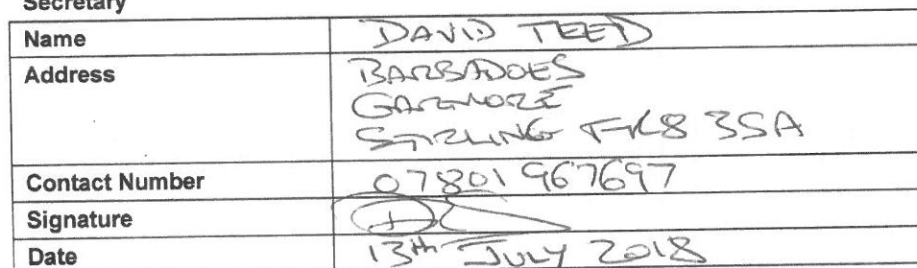 Secretary
Name DAVID TEED
Address BARBADOES
GARTMORE
STIRLING FK8 3SA
Contact Number 07801 967697
Signature
Date 13th JULY 2018